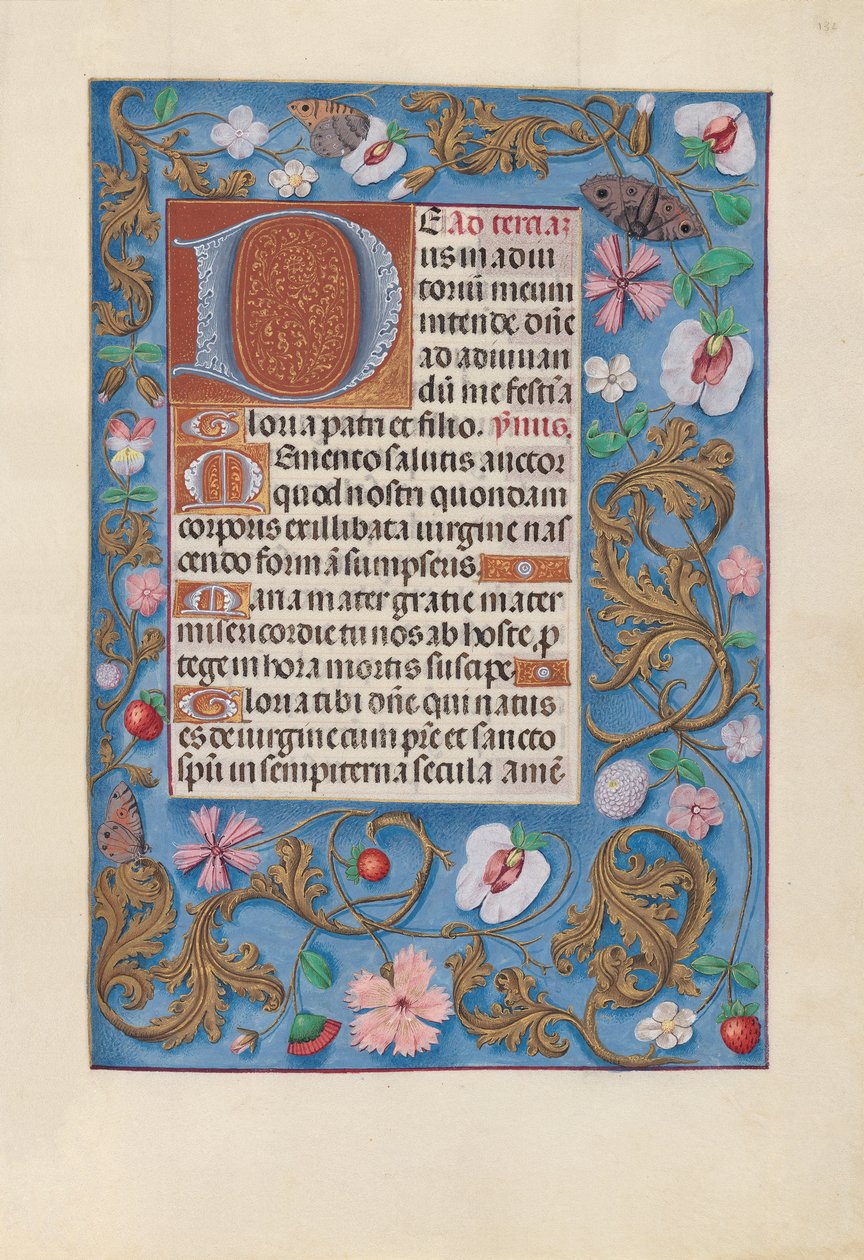 132
D E Ad terciaꝫ
us in adiu
toriū meum
intende. dn̄e
ad adiuuan
dū me festīa
Gloria patri et filio. ȳmus.
Memento salutis auctor
quod nostri quondam
corporis ex illibata uirgine nas
cendo formā sumpseris.
Maria mater gratie mater
misericordie tu nos ab hoste p
tege in hora mortis suscipe
Gloria tibi dn̄e qui natus
es de uirgine cum pr̄e et sancto
spū in sempiterna secula amē.